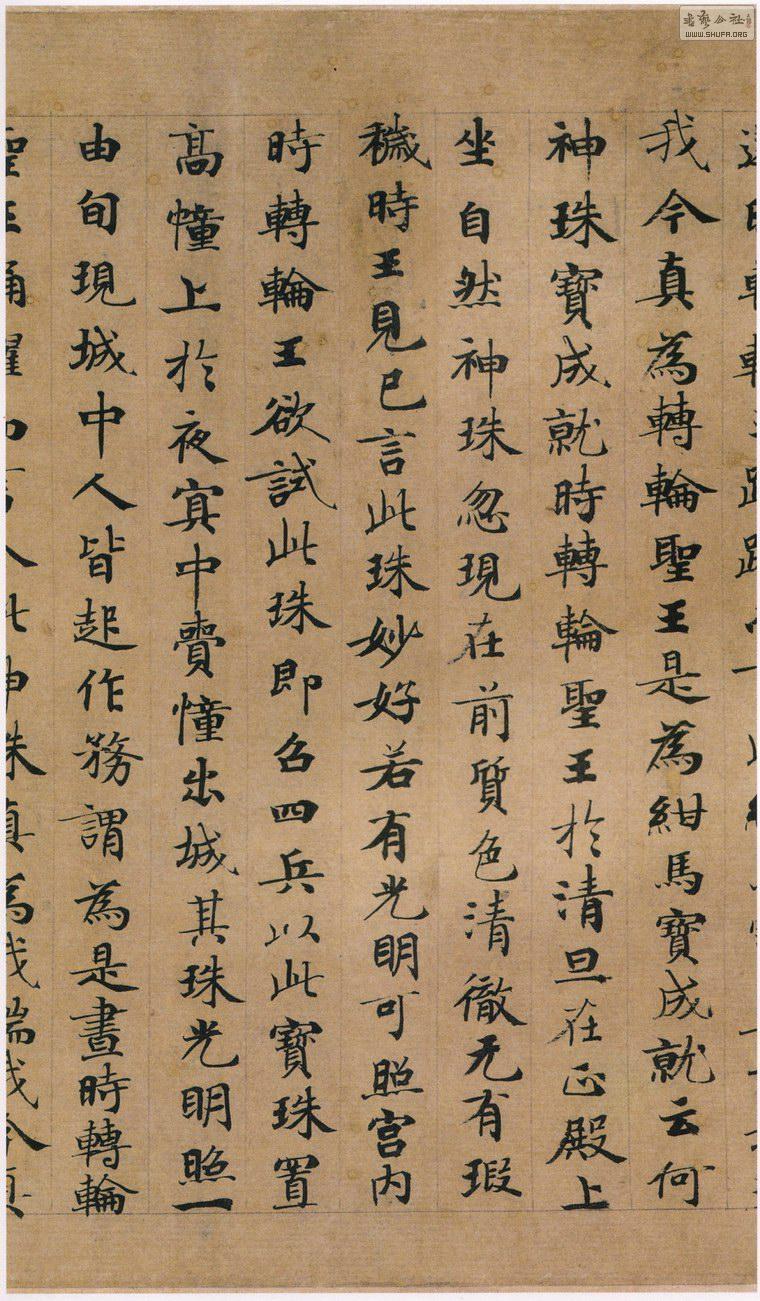 我今真為轉輪聖王是為紺馬寶成就云何
神珠寶成就時轉輪聖王於清旦在正殿上
坐自然神珠忽現在前質色清徹无有瑕
穢時王見已言此珠妙好若有光明可照宮内
時轉輪王欲試此珠即召四兵以此寶珠置
高幢上於夜冥中賷幢出城其珠光明照一
由旬現城中人皆起作務謂為是晝時轉輪
聖王踊躍而言今此神珠真為我瑞我今真
WWW.SHUFA.ORG